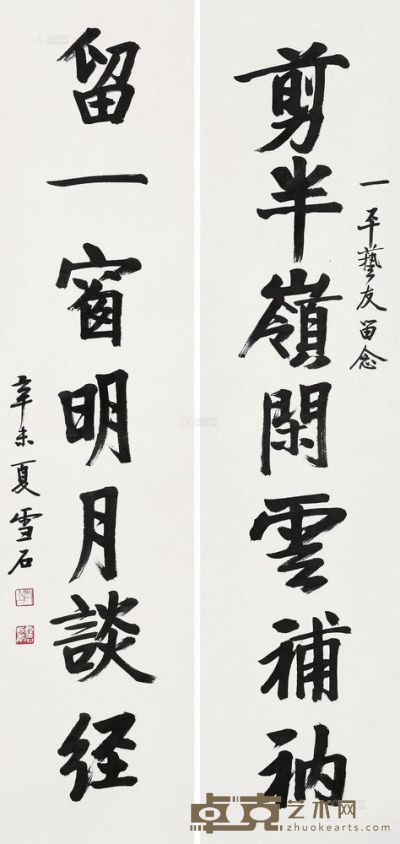 一平藝友留念
剪半嶺閑雲補衲
留一窗明月談经
辛未夏雪石
卓克艺术网
zhuokearts.com